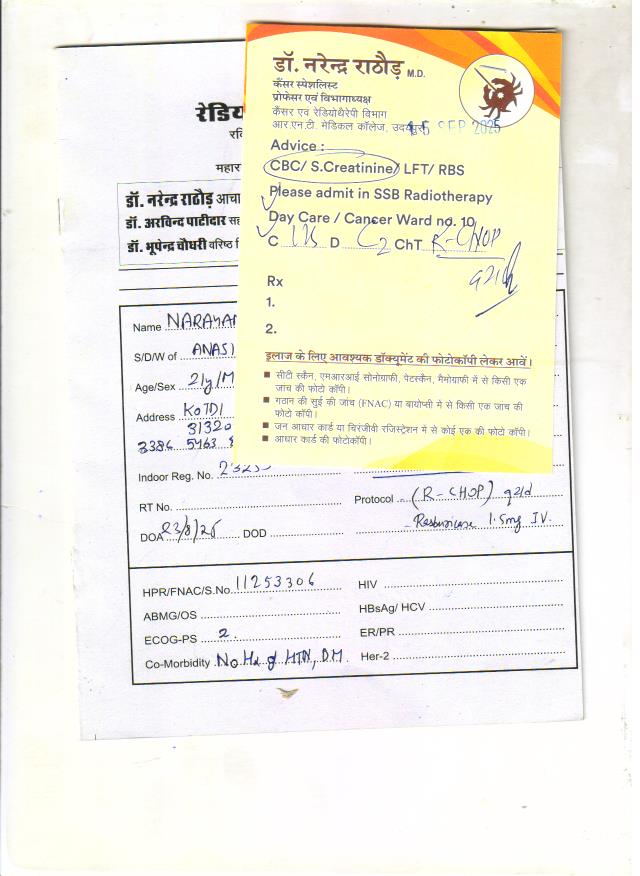 डॉ. नरेन्द्र राठौड़ M.D.
कैंसर स्पेशलिस्ट
प्रोफेसर एवं विभागाध्यक्ष
कैंसर एवं रेडियोथैरेपी विभाग
आर.एन.टी. मेडिकल कॉलेज, उदयपुर
15 SEP 2025
Advice :
CBC/ S.Creatinine/ LFT/ RBS
Please admit in SSB Radiotherapy
Day Care / Cancer Ward no. 10
C D C2 ChT R-CHOP
q21d
Rx
1.
2.
इलाज के लिए आवश्यक डॉक्यूमेंट की फोटोकॉपी लेकर आवें।
सीटी स्कैन, एमआरआई सोनोग्राफी, पेटस्कैन, मैमोग्राफी में से किसी एक
जांच की फोटो कॉपी।
गठान की सुई की जांच (FNAC) या बायोप्सी में से किसी एक जांच की
फोटो कॉपी।
जन आधार कार्ड या चिरंजीवी रजिस्ट्रेशन में से कोई एक की फोटो कॉपी।
आधार कार्ड की फोटोकॉपी।
रेडि
महार
डॉ. नरेन्द्र राठौड़ आचा
डॉ. अरविन्द पाटीदार सह
डॉ. भूपेन्द्र चौधरी वरिष्ठ
Name NARAYAN
S/D/W of ANASI
Age/Sex 21y/M
Address KOTDI
31320
Indoor Reg. No.
RT No.
Protocol (R-CHOP) q21d
Rasburicase 1.5mg IV.
DOA 23/8/25 DOD
HPR/FNAC/S.No. 11253306
HIV
ABMG/OS
HBsAg/ HCV
ECOG-PS 2.
ER/PR
Co-Morbidity No H/o HTN, DM.
Her-2